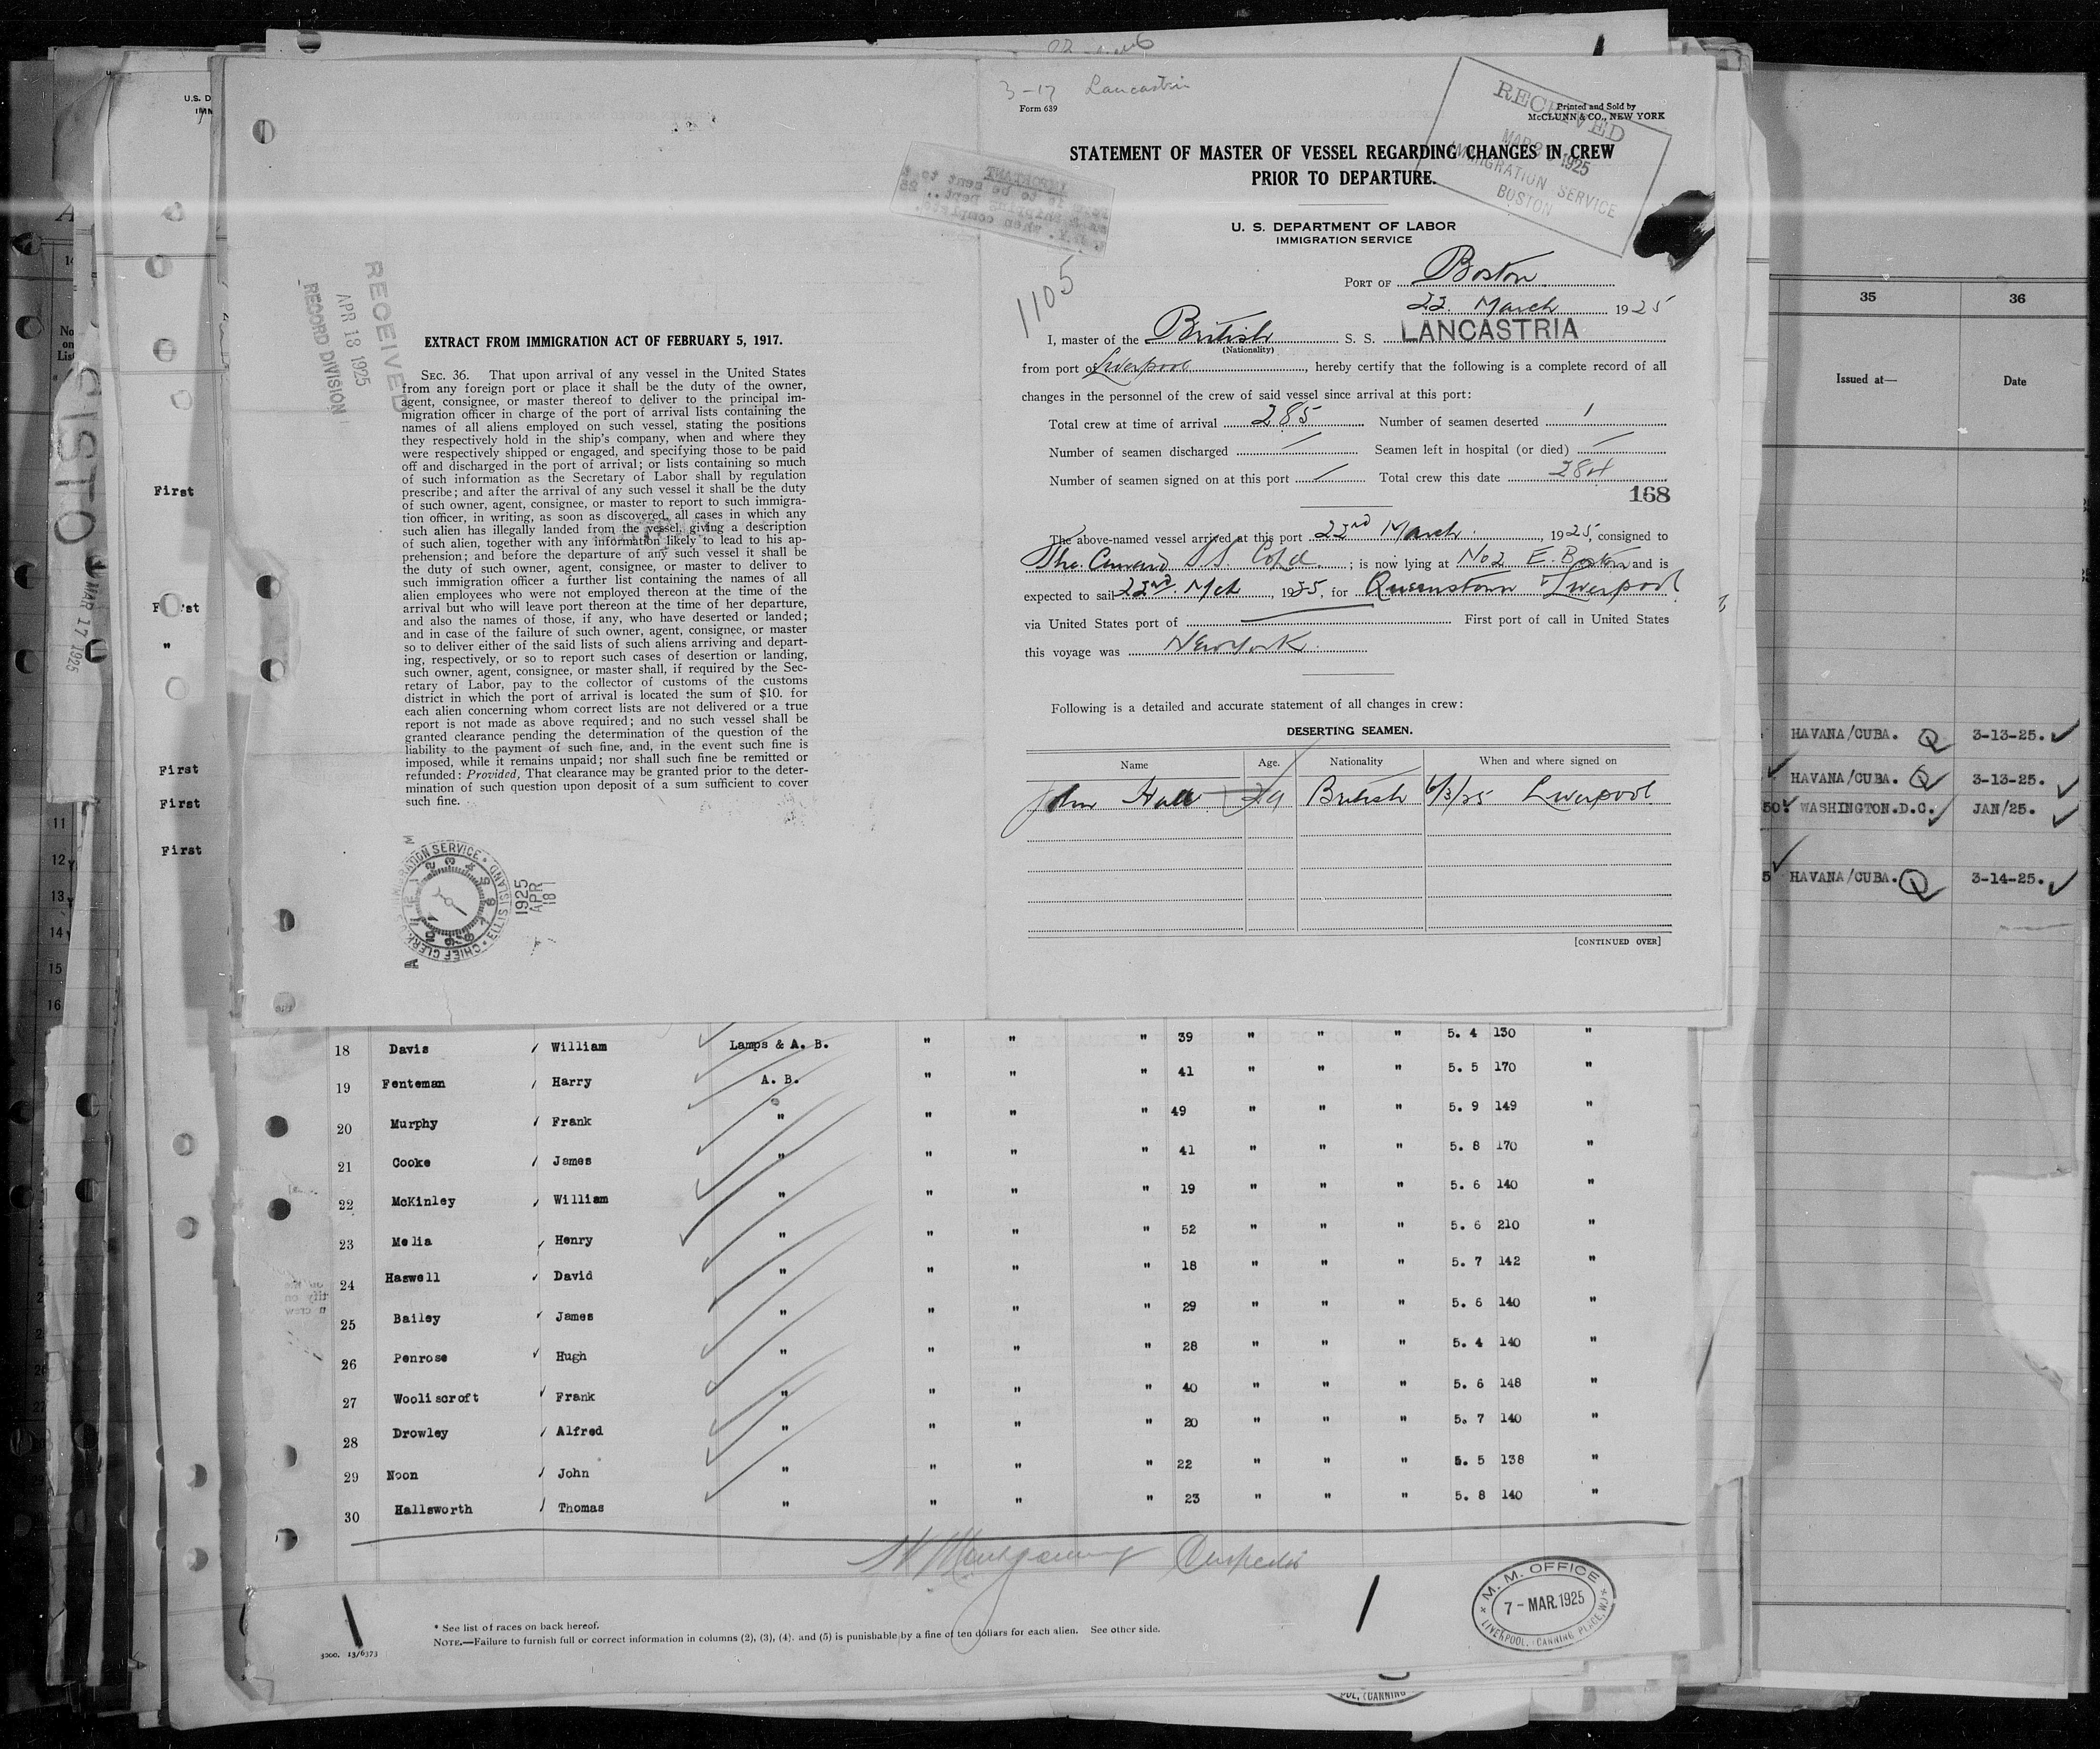 3-17 Lancastria
Form 639
Printed and Sold by
McCLUNN & CO., NEW YORK
RECEIVED
MAR 2 1925
IMMIGRATION SERVICE
BOSTON
STATEMENT OF MASTER OF VESSEL REGARDING CHANGES IN CREW
PRIOR TO DEPARTURE.
U. S. DEPARTMENT OF LABOR
IMMIGRATION SERVICE
1105
PORT OF Boston
22. March 1925
I, master of the British S. S. LANCASTRIA
(Nationality)
from port of Liverpool, hereby certify that the following is a complete record of all
changes in the personnel of the crew of said vessel since arrival at this port:
Total crew at time of arrival 285 Number of seamen deserted 1
Number of seamen discharged / Seamen left in hospital (or died) /
Number of seamen signed on at this port / Total crew this date 284
168
The above-named vessel arrived at this port 22nd March, 1925, consigned to
The Cunard S.S. Co Ld.; is now lying at No 2 E. Boston and is
expected to sail 22nd Mch, 1925, for Queenstown & Liverpool
via United States port of First port of call in United States
this voyage was New York.
Following is a detailed and accurate statement of all changes in crew:
DESERTING SEAMEN.
Name Age. Nationality When and where signed on
John Hall 29 British 6/3/25 Liverpool.
[CONTINUED OVER]
RECEIVED
APR 18 1925
RECORD DIVISION
EXTRACT FROM IMMIGRATION ACT OF FEBRUARY 5, 1917.
SEC. 36. That upon arrival of any vessel in the United States
from any foreign port or place it shall be the duty of the owner,
agent, consignee, or master thereof to deliver to the principal im-
migration officer in charge of the port of arrival lists containing the
names of all aliens employed on such vessel, stating the positions
they respectively hold in the ship's company, when and where they
were respectively shipped or engaged, and specifying those to be paid
off and discharged in the port of arrival; or lists containing so much
of such information as the Secretary of Labor shall by regulation
prescribe; and after the arrival of any such vessel it shall be the duty
of such owner, agent, consignee, or master to report to such immigra-
tion officer, in writing, as soon as discovered, all cases in which any
such alien has illegally landed from the vessel, giving a description
of such alien, together with any information likely to lead to his ap-
prehension; and before the departure of any such vessel it shall be
the duty of such owner, agent, consignee, or master to deliver to
such immigration officer a further list containing the names of all
alien employees who were not employed thereon at the time of the
arrival but who will leave port thereon at the time of her departure,
and also the names of those, if any, who have deserted or landed;
and in case of the failure of such owner, agent, consignee, or master
so to deliver either of the said lists of such aliens arriving and depart-
ing, respectively, or so to report such cases of desertion or landing,
such owner, agent, consignee, or master shall, if required by the Sec-
retary of Labor, pay to the collector of customs of the customs
district in which the port of arrival is located the sum of $10. for
each alien concerning whom correct lists are not delivered or a true
report is not made as above required; and no such vessel shall be
granted clearance pending the determination of the question of the
liability to the payment of such fine, and, in the event such fine is
imposed, while it remains unpaid; nor shall such fine be remitted or
refunded: Provided, That clearance may be granted prior to the deter-
mination of such question upon deposit of a sum sufficient to cover
such fine.
1925
APR
181
18 Davis William Lamps & A. B. " " " 39 " " " 5. 4 130 "
19 Fenteman Harry A. B. " " " 41 " " " 5. 5 170 "
20 Murphy Frank " " " " 49 " " " 5. 9 149 "
21 Cooke James " " " " 41 " " " 5. 8 170 "
22 McKinley William " " " " 19 " " " 5. 6 140 "
23 Melia Henry " " " " 52 " " " 5. 6 210 "
24 Haswell David " " " " 18 " " " 5. 7 142 "
25 Bailey James " " " " 29 " " " 5. 6 140 "
26 Penrose Hugh " " " " 28 " " " 5. 4 140 "
27 Wooliscroft Frank " " " " 40 " " " 5. 6 148 "
28 Drowley Alfred " " " " 20 " " " 5. 7 140 "
29 Noon John " " " " 22 " " " 5. 5 138 "
30 Hallsworth Thomas " " " " 23 " " " 5. 8 140 "
Montgomery Inspector
* See list of races on back hereof.
NOTE.—Failure to furnish full or correct information in columns (2), (3), (4), and (5) is punishable by a fine of ten dollars for each alien. See other side.
5000. 13/6373
M. M. OFFICE
7 - MAR. 1925
LIVERPOOL, (CANNING PLACE, W.)
First
"
First
First
First
11
12
13
14
15
16
MAR 17 1925
35 36
Issued at— Date
HAVANA/CUBA. Q 3-13-25.
HAVANA/CUBA. Q 3-13-25.
50. WASHINGTON.D.C. JAN/25.
5 HAVANA/CUBA. Q 3-14-25.